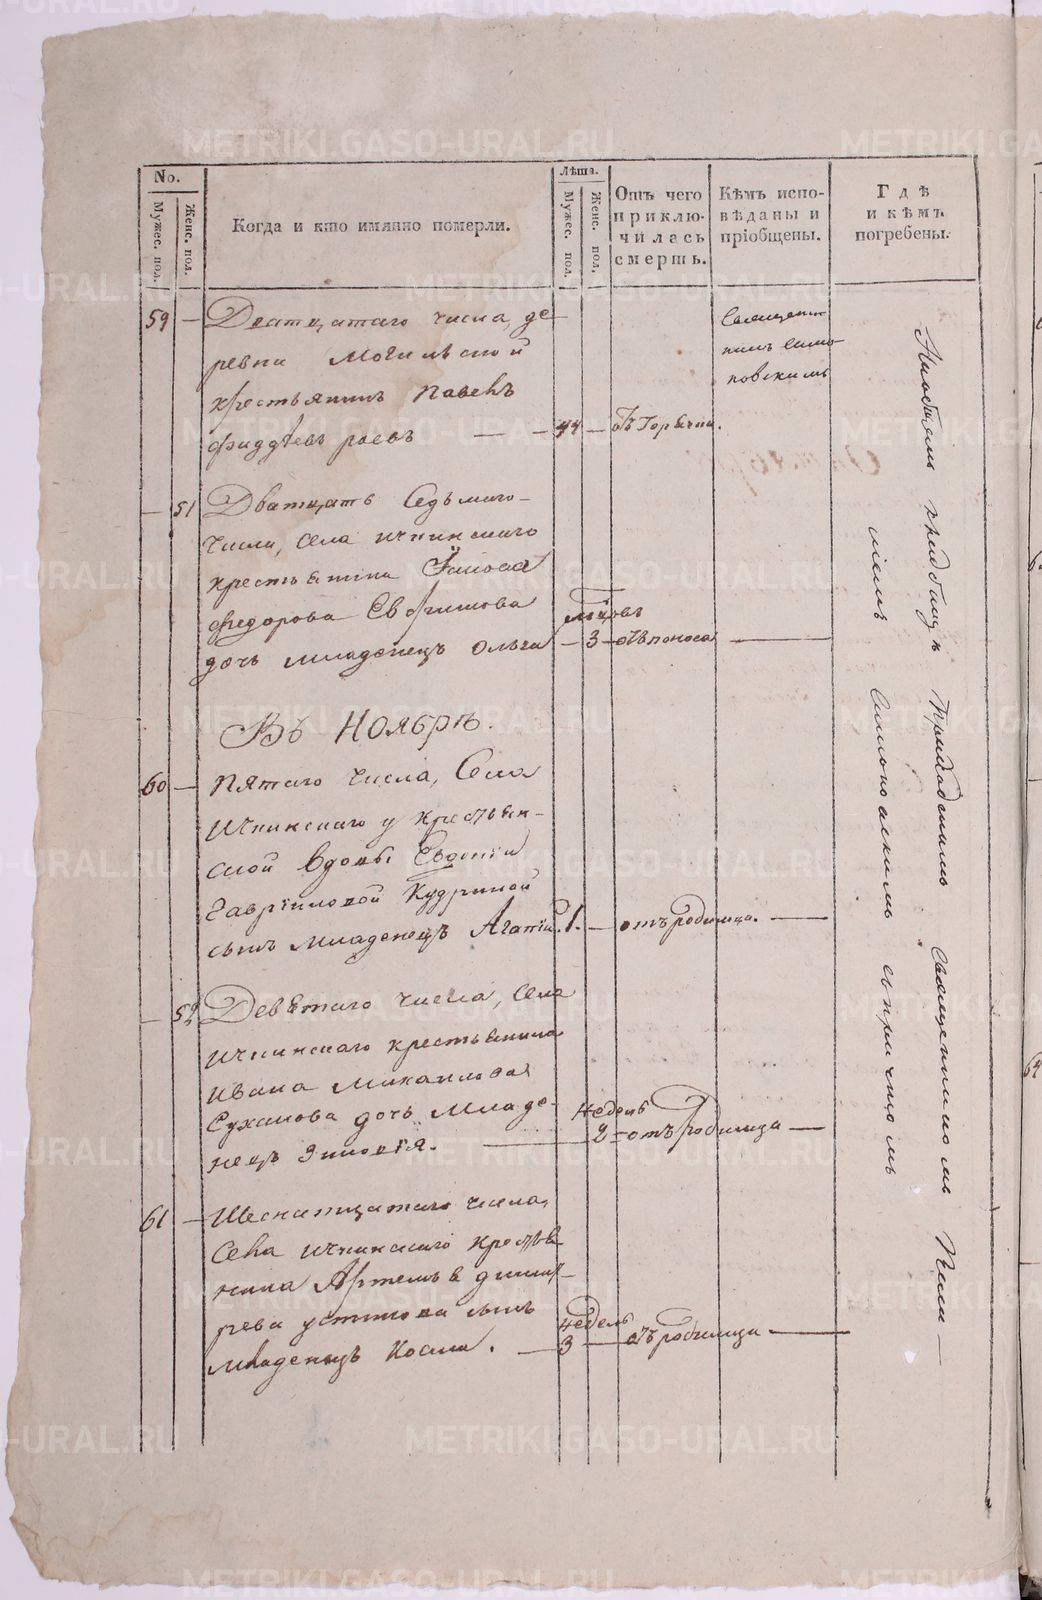 No.
Мужес. пол.
Женс. пол.
Когда и кто имянно померли.
Лѣта.
Мужес. пол.
Женс. пол.
Отъ чего
приклю-
чилась
смерть.
Кѣмъ испо-
вѣданы и
пріобщены.
Гдѣ
и кѣмъ
погребены.
59 — Дватцатаго числа, де
ревни Могильской
крестьянинъ Павелъ
— — 44 — отъ Горячки.
Священни
комъ Симо
новскимъ
— 51 Дватцать Седьмаго
числа, села Ичкинскаго
крестьянина
Федорова Евфимова
дочь младенецъ Ольга — 3 — отъ поноса —
Въ Ноябрѣ.
60 — Пятаго числа, Села
Ичкинскаго у крестьян-
ской вдовы Евдокіи
Гавриловой Кудриной
сынъ младенецъ Агапій. 1. — отъ родимца. —
— 52 Девятаго числа, села
Ичкинскаго крестьянина
Ивана Михаилова
Суханова дочь младе-
нецъ Зиновія. — недель 2 — отъ родимца —
61 — Шеснатцатаго числа,
Села Ичкинскаго крестья
нина Артемья
Устинова сынъ
младенецъ Косма. — недель 3 — отъ родимца —
На общемъ кладбищѣ Приходскимъ Священникомъ
Симоновскимъ съ причтомъ
METRIKI.GASO-URAL.RU